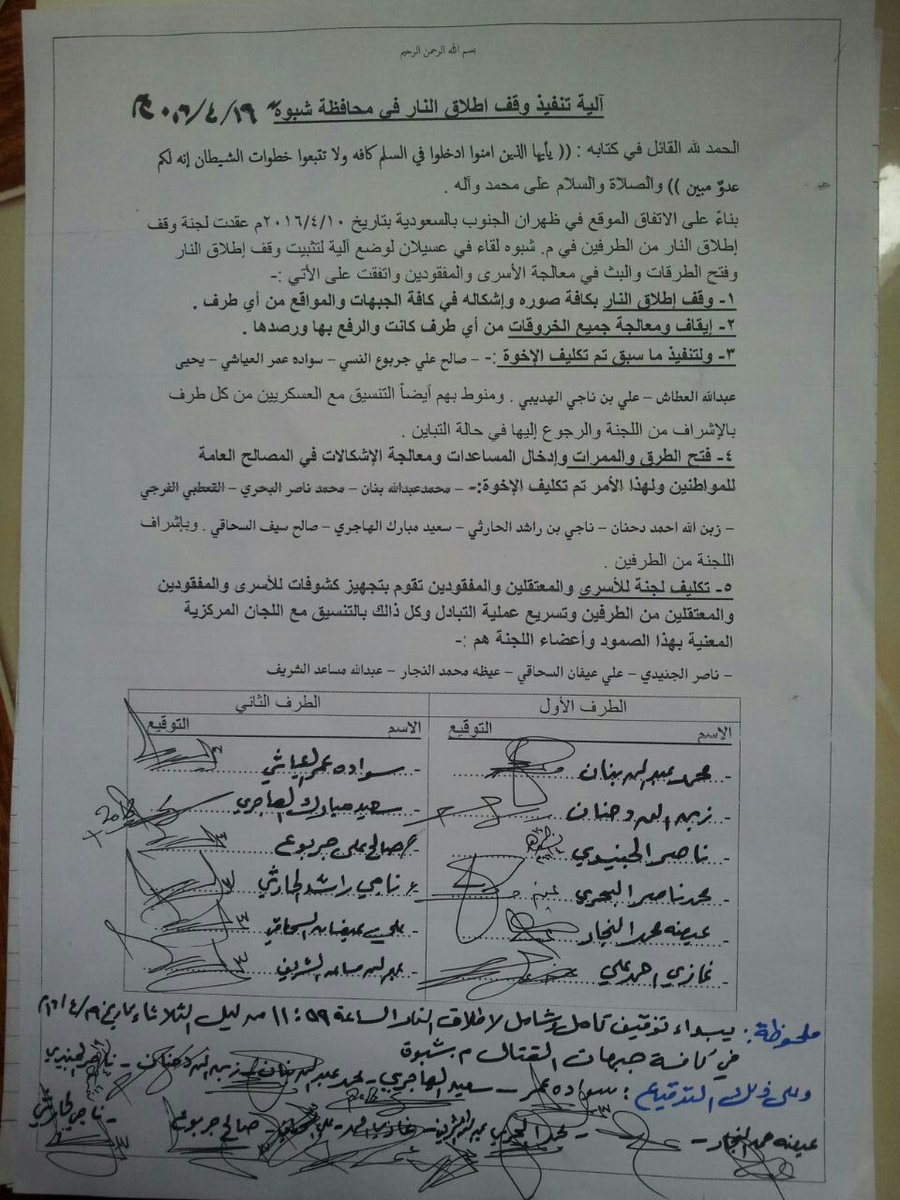 بسم الله الرحمن الرحيم
آلية تنفيذ وقف اطلاق النار في محافظة شبوه ٢٠١٦/٤/١٩م
الحمد لله القائل في كتابه : (( يأيها الذين امنوا ادخلوا في السلم كافه ولا تتبعوا خطوات الشيطان إنه لكم
عدوٌ مبين )) والصلاة والسلام على محمد وآله .
بناءً على الاتفاق الموقع في ظهران الجنوب بالسعودية بتاريخ ٢٠١٦/٤/١٠م عقدت لجنة وقف
إطلاق النار من الطرفين في م. شبوه لقاء في عسيلان لوضع آلية لتثبيت وقف إطلاق النار
وفتح الطرقات والبث في معالجة الأسرى والمفقودين واتفقت على الأتي :-
١- وقف إطلاق النار بكافة صوره وإشكاله في كافة الجبهات والمواقع من أي طرف .
٢- إيقاف ومعالجة جميع الخروقات من أي طرف كانت والرفع بها ورصدها .
٣- ولتنفيذ ما سبق تم تكليف الإخوة :- – صالح علي جربوع النسي – سواده عمر العياشي – يحيى
عبدالله العطاش – علي بن ناجي الهديبي . ومنوط بهم أيضاً التنسيق مع العسكريين من كل طرف
بالإشراف من اللجنة والرجوع إليها في حالة التباين .
٤- فتح الطرق والممرات وإدخال المساعدات ومعالجة الإشكالات في المصالح العامة
للمواطنين ولهذا الأمر تم تكليف الإخوة:- – محمدعبدالله بنان – محمد ناصر البحري – القعطبي الفرجي
– زبن الله احمد دحنان – ناجي بن راشد الحارثي – سعيد مبارك الهاجري – صالح سيف السحاقي . وبإشراف
اللجنة من الطرفين .
٥- تكليف لجنة للأسرى والمعتقلين والمفقودين تقوم بتجهيز كشوفات للأسرى والمفقودين
والمعتقلين من الطرفين وتسريع عملية التبادل وكل ذالك بالتنسيق مع اللجان المركزية
المعنية بهذا الصمود وأعضاء اللجنة هم :-
– ناصر الجنيدي – علي عيفان السحاقي – عيظه محمد النجار – عبدالله مساعد الشريف
الطرف الأول الطرف الثاني
الاسم التوقيع الاسم التوقيع
- محمد عبدالله بنان - سواده عمر العياشي
- زبن الله دحنان - سعيد مبارك الهاجري
- ناصر الجنيدي - صالح علي جربوع
- محمد ناصر البحري - ناجي راشد الحارثي
- عيظه محمد النجار - علي عيفان السحاقي
- غازي احمد علي - عبدالله مساعد الشريف
ملحوظة: يبداء توقيف كامل وشامل لاطلاق النار الساعة ١١:٥٩ من ليل الثلاثاء بتاريخ ٢٠١٦/٤/١٩
في كافة جبهات القتال م. شبوة
وعلى ذلك التوقيع : سواده عمر – سعيد الهاجري – محمد عبدالله بنان – زبن الله دحنان – ناصر الجنيدي
عيظه محمد النجار – محمد البحري – صالح جربوع – ناجي الحارثي